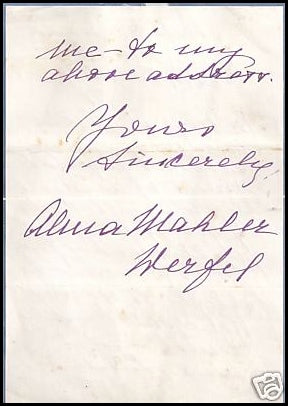 me – to my
above address.
Yours
Sincerely,
Alma Mahler
Werfel